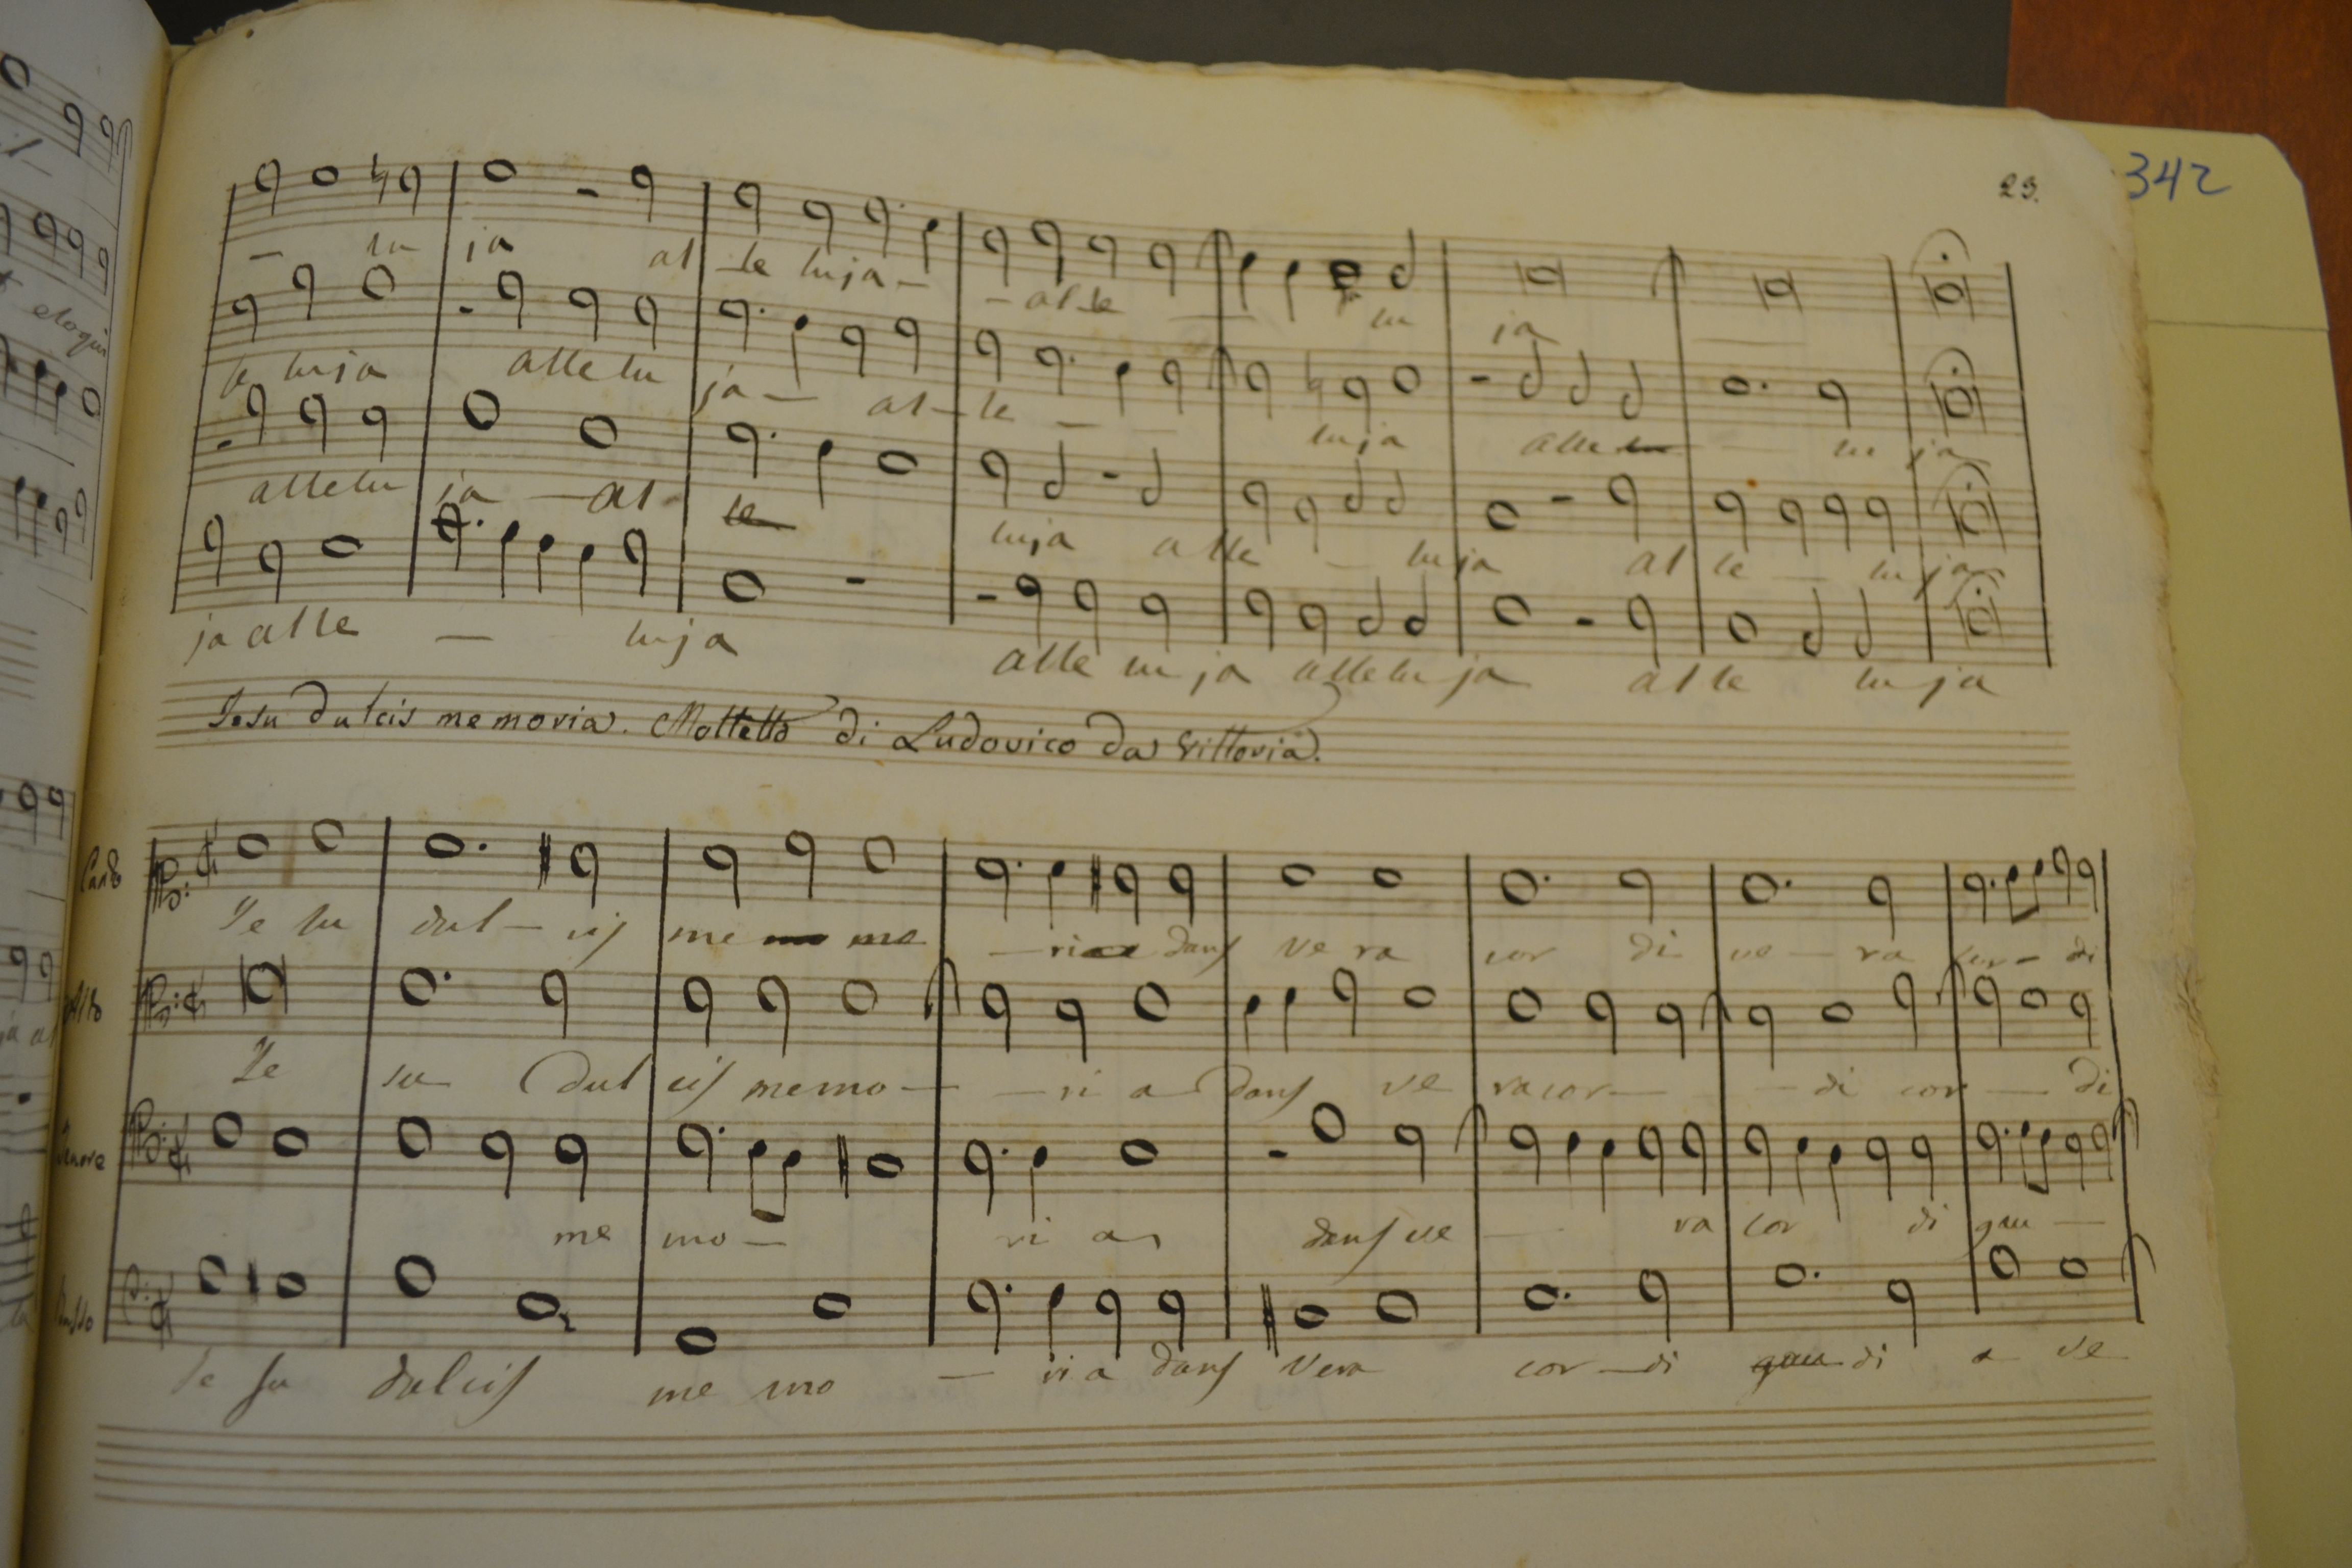 342
23.
eloqui
lu ja al le luja - - alle lu ja
le luja allelu ja - al - le luja alle lu ja
allelu ja - al le luja alle luja al le lu ja
ja alle luja alle lu ja allelu ja alle lu ja
Iesu dulcis memoria. Mottetto di Ludovico da Vittoria.
Canto
Ie su dul - cis me mo - ria dans ve ra cor di ve - ra cor - di
Alto
Ie su dul cis memo - ri a dans ve ra cor - di cor - di
Tenore
me mo - ri a dans ve ra cor di gau -
Basso
Ie su dulcis me mo - ri a dans vera cor - di gau di a ve